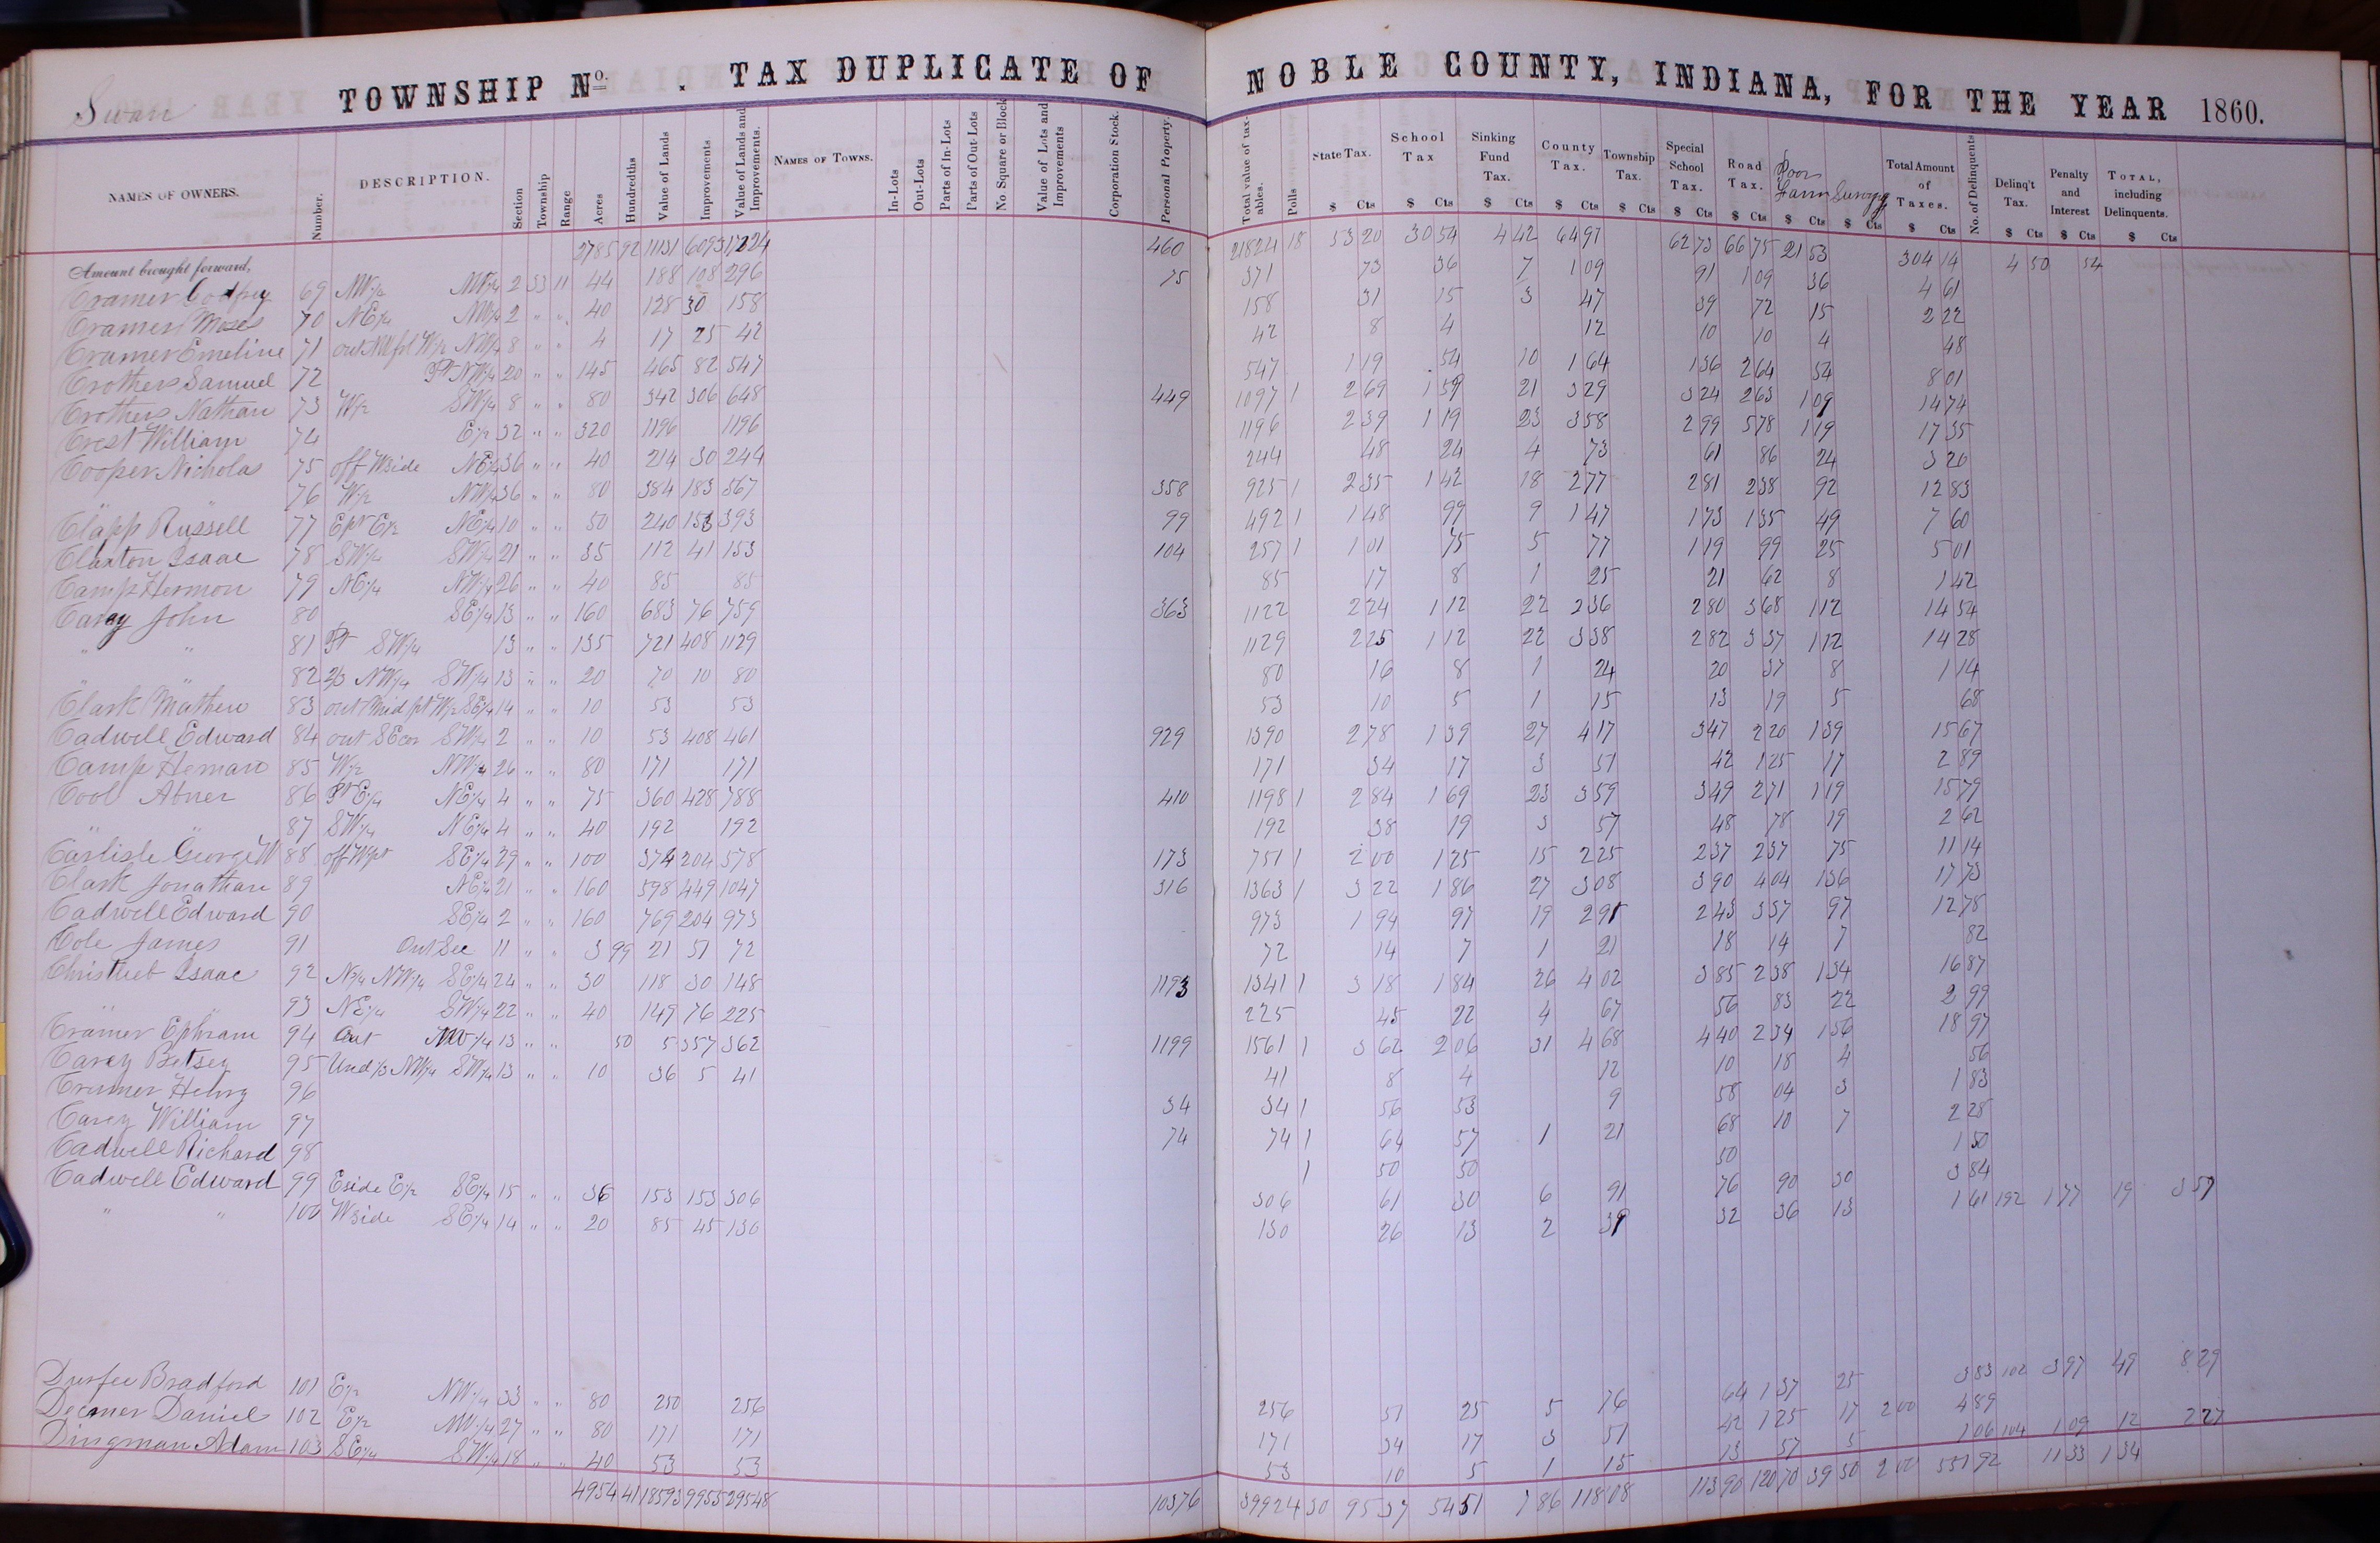 Swan TOWNSHIP No. . TAX DUPLICATE OF NOBLE COUNTY, INDIANA, FOR THE YEAR 1860.
NAMES OF OWNERS. Number. DESCRIPTION. Section Township Range Acres Hundredths Value of Lands Improvements Value of Lands and Improvements. NAMES OF TOWNS. In-Lots Out-Lots Parts of In-Lots Parts of Out-Lots No Square or Block Value of Lots and Improvements Corporation Stock. Personal Property. Total value of taxables. Polls State Tax. School Tax Sinking Fund Tax. County Tax. Township Tax. Special School Tax. Road Tax. Poor Farm Total Amount of Taxes. No. of Delinquents Delinq't Tax. Penalty and Interest TOTAL, including Delinquents.
$ Cts $ Cts $ Cts $ Cts $ Cts $ Cts $ Cts $ Cts $ Cts $ Cts $ Cts $ Cts $ Cts
Amount brought forward, 2785 92 11131 6093 17224 460 21824 18 53 20 30 54 4 42 64 97 62 73 66 75 21 53 304 14 4 50 54
Cramer Godfrey 69 NW1/4 NW1/4 2 33 11 44 188 108 296 75 371 73 36 7 1 09 91 1 09 36 4 61
Cramer Moses 70 NE1/4 NW1/4 2 " " 40 128 30 158 158 31 15 3 47 39 72 15 2 22
Cramer Emeline 71 out NW pt W1/2 NW1/4 8 " " 4 17 25 42 42 8 4 12 10 10 4 48
Crothers Samuel 72 Pt NW1/4 20 " " 145 465 82 547 547 1 19 54 10 1 64 1 36 2 64 54 8 01
Crothers Nathan 73 W1/2 SW1/4 8 " " 80 342 306 648 449 1097 1 2 69 1 59 21 3 29 3 24 2 63 1 09 14 74
Crest William 74 E1/2 32 " " 320 1196 1196 1196 2 39 1 19 23 3 58 2 99 5 78 1 19 17 35
Cooper Nicholas 75 off W side NE1/4 36 " " 40 214 30 244 244 48 24 4 73 61 86 24 3 20
" 76 W1/2 NW1/4 36 " " 80 384 183 567 358 925 1 2 35 1 42 18 2 77 2 81 2 38 92 12 83
Clapp Russell 77 E pt E1/2 NE1/4 10 " " 50 240 153 393 99 492 1 1 48 99 9 1 47 1 73 1 35 49 7 60
Claxton Isaac 78 SW1/4 SW1/4 21 " " 35 112 41 153 104 257 1 1 01 75 5 77 1 19 99 25 5 01
Camp Hermon 79 NE1/4 NW1/4 26 " " 40 85 85 85 17 8 1 25 21 62 8 1 42
Carey John 80 SE1/4 13 " " 160 683 76 759 363 1122 2 24 1 12 22 2 36 2 80 3 68 1 12 14 54
" " 81 Pt SW1/4 13 " " 135 721 408 1129 1129 2 25 1 12 22 3 38 2 82 3 37 1 12 14 28
" " 82 2/3 NW1/4 SW1/4 13 " " 20 70 10 80 80 16 8 1 24 20 37 8 1 14
Clark Mathew 83 out Mid pt W1/2 SE1/4 14 " " 10 53 53 53 10 5 1 15 13 19 5 68
Cadwell Edward 84 out SE cor SW1/4 2 " " 10 53 408 461 929 1390 2 78 1 39 27 4 17 3 47 2 20 1 39 15 67
Camp Heman 85 W1/2 NW1/4 26 " " 80 171 171 171 34 17 3 51 42 1 25 17 2 89
Cool Abner 86 Pt E1/4 NE1/4 4 " " 75 360 428 788 410 1198 1 2 84 1 69 23 3 59 3 49 2 71 1 19 15 79
" " 87 SW1/4 NE1/4 4 " " 40 192 192 192 38 19 3 57 48 78 19 2 62
Carlisle George W 88 off W pt SE1/4 29 " " 100 374 204 578 173 751 1 2 00 1 25 15 2 25 2 37 2 37 75 11 14
Clark Jonathan 89 NE1/4 21 " " 160 598 449 1047 316 1363 1 3 22 1 86 27 3 08 3 90 4 04 1 36 17 73
Cadwell Edward 90 SE1/4 2 " " 160 769 204 973 973 1 94 97 19 2 91 2 43 3 37 97 12 78
Cole James 91 Out Sec 11 " " 3 99 21 51 72 72 14 7 1 21 18 14 7 82
Christlieb Isaac 92 N3/4 NW1/4 SE1/4 24 " " 30 118 30 148 1193 1341 1 3 18 1 84 26 4 02 3 85 2 38 1 34 16 87
" " 93 NE1/4 SW1/4 22 " " 40 149 76 225 225 45 22 4 67 56 83 22 2 99
Cramer Ephram 94 Out NW1/4 13 " " 50 5 357 362 1199 1561 1 3 62 2 06 31 4 68 4 40 2 34 1 56 18 97
Carey Betsey 95 Und 1/3 NW1/4 SW1/4 13 " " 10 36 5 41 41 8 4 12 10 18 4 56
Cramer Henry 96 34 34 1 56 53 9 58 04 3 1 83
Carey William 97 74 74 1 64 57 1 21 68 10 7 2 28
Cadwell Richard 98 1 50 50 50 1 50
Cadwell Edward 99 E side E1/2 SE1/4 15 " " 36 153 153 306 306 61 30 6 91 76 90 30 3 84
" " 100 W side SE1/4 14 " " 20 85 45 130 130 26 13 2 39 32 36 13 1 61 192 1 77 19 3 57
Durfee Bradford 101 E1/2 NW1/4 33 " " 80 250 256 256 51 25 5 76 64 1 37 25 3 83 102 3 97 49 8 29
Decamer Daniel 102 E1/2 NW1/4 27 " " 80 171 171 171 34 17 3 51 42 1 25 17 2 00 4 89
Dingman Adam 103 SE1/4 SW1/4 18 " " 40 53 53 53 10 5 1 15 13 57 5 1 06 104 1 09 12 2 27
4954 41 18593 9955 29548 10376 39924 30 95 37 54 51 7 86 118 08 113 90 120 70 39 50 2 00 551 92 11 33 1 34